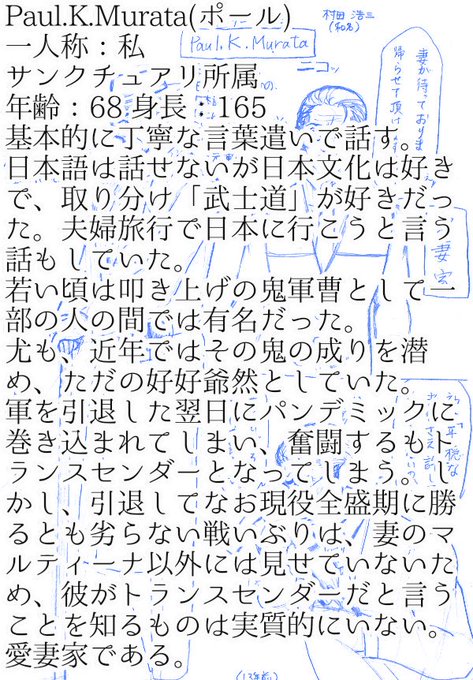 Paul.K.Murata(ポール)
一人称：私
サンクチュアリ所属
年齢：68 身長：165
基本的に丁寧な言葉遣いで話す。
日本語は話せないが日本文化は好き
で、取り分け「武士道」が好きだっ
た。夫婦旅行で日本に行こうと言う
話もしていた。
若い頃は叩き上げの鬼軍曹として一
部の人の間では有名だった。
尤も、近年ではその鬼の成りを潜
め、ただの好好爺然としていた。
軍を引退した翌日にパンデミックに
巻き込まれてしまい、奮闘するもト
ランスセンダーとなってしまう。し
かし、引退してなお現役全盛期に勝
るとも劣らない戦いぶりは、妻のマ
ルティーナ以外には見せていないた
め、彼がトランスセンダーだと言う
ことを知るものは実質的にいない。
愛妻家である。
村田 浩三
(和名)
Paul.K.Murata
ニコッ
妻が待っております
帰らせて頂け